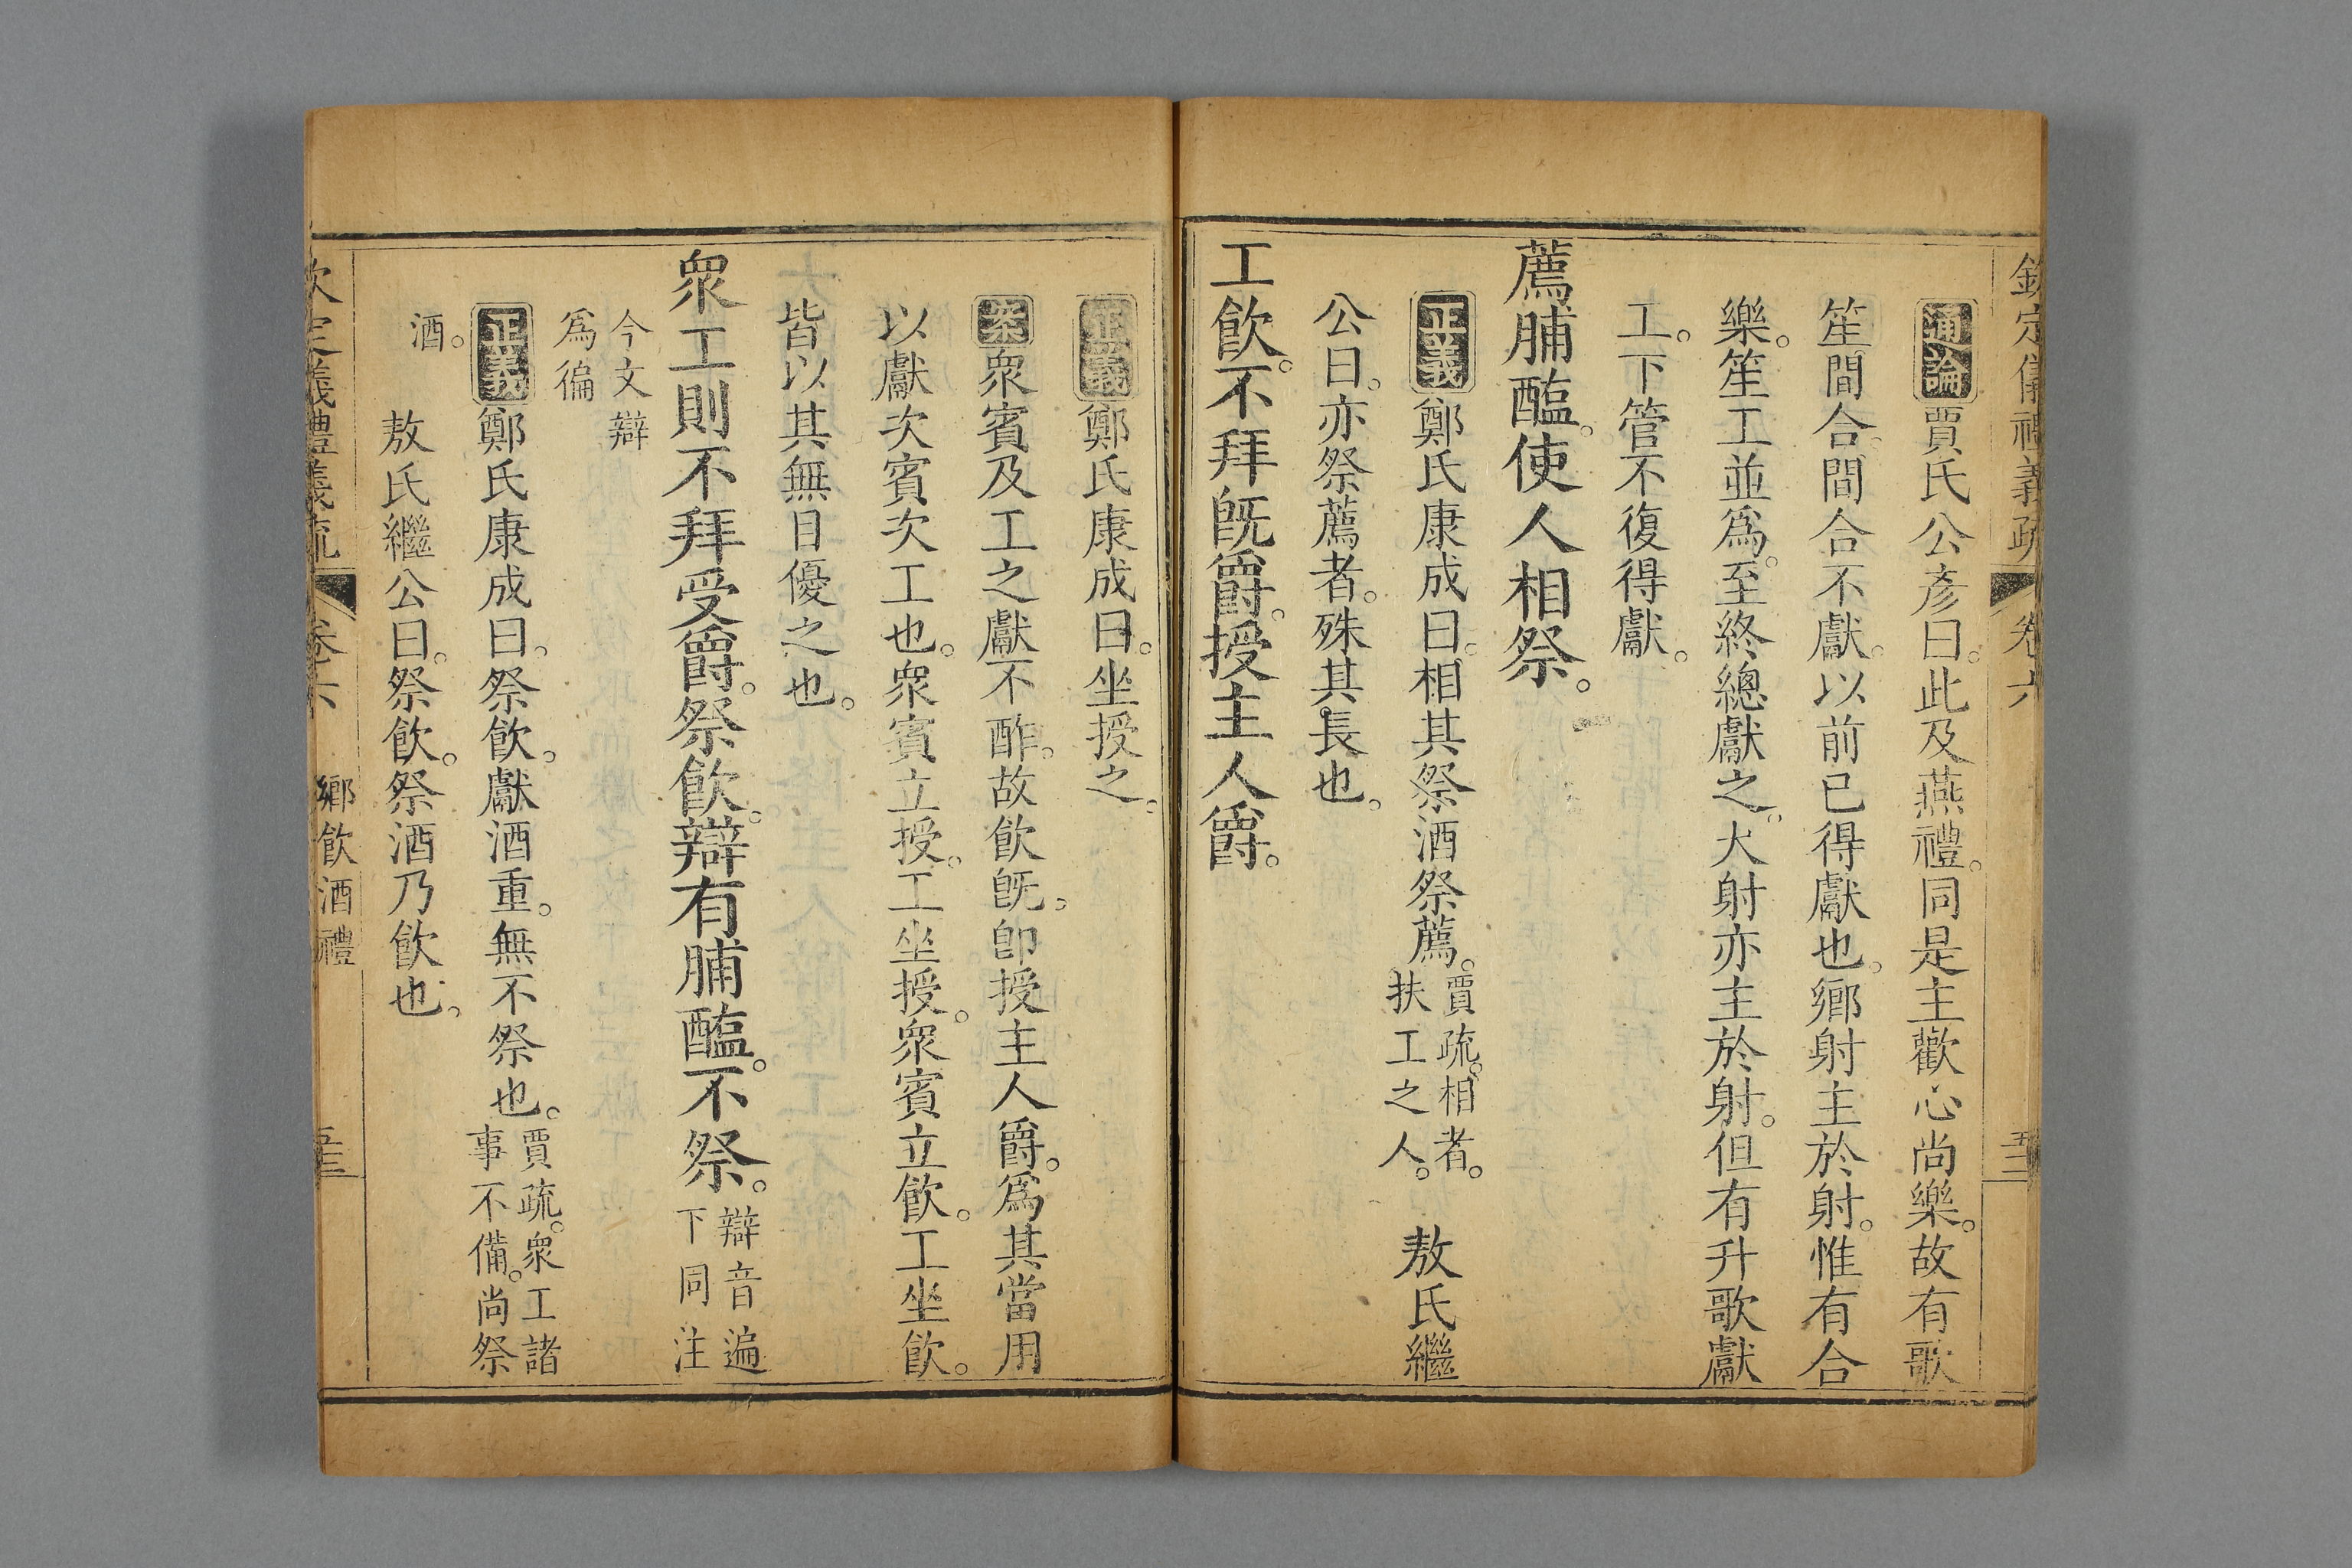 欽定儀禮義疏 卷六 五二
通論賈氏公彥曰。此及燕禮。同是主歡心尚樂。故有歌
笙間合。間合不獻。以前已得獻也。鄉射主於射。惟有合
樂。笙工並爲。至終總獻之。大射亦主於射。但有升歌獻
工。下管不復得獻。
薦脯醢。使人相祭。
正義鄭氏康成曰。相其祭酒祭薦。賈疏。相者。扶工之人。 敖氏繼
公曰。亦祭薦者。殊其長也。
工飲。不拜旣爵。授主人爵。
正義鄭氏康成曰。坐授之。
案衆賓及工之獻不酢。故飲旣。卽授主人爵。爲其當用
以獻次賓次工也。衆賓立授。工坐授。衆賓立飲。工坐飲。
皆以其無目優之也。
衆工則不拜受爵。祭飲。辯有脯醢。不祭。辯音遍下同注
今文辯爲徧
正義鄭氏康成曰。祭飲。獻酒重。無不祭也。賈疏。衆工諸事不備。尚祭
酒。 敖氏繼公曰。祭飲。祭酒乃飲也。
欽定儀禮義疏 卷六 鄉飲酒禮 五三